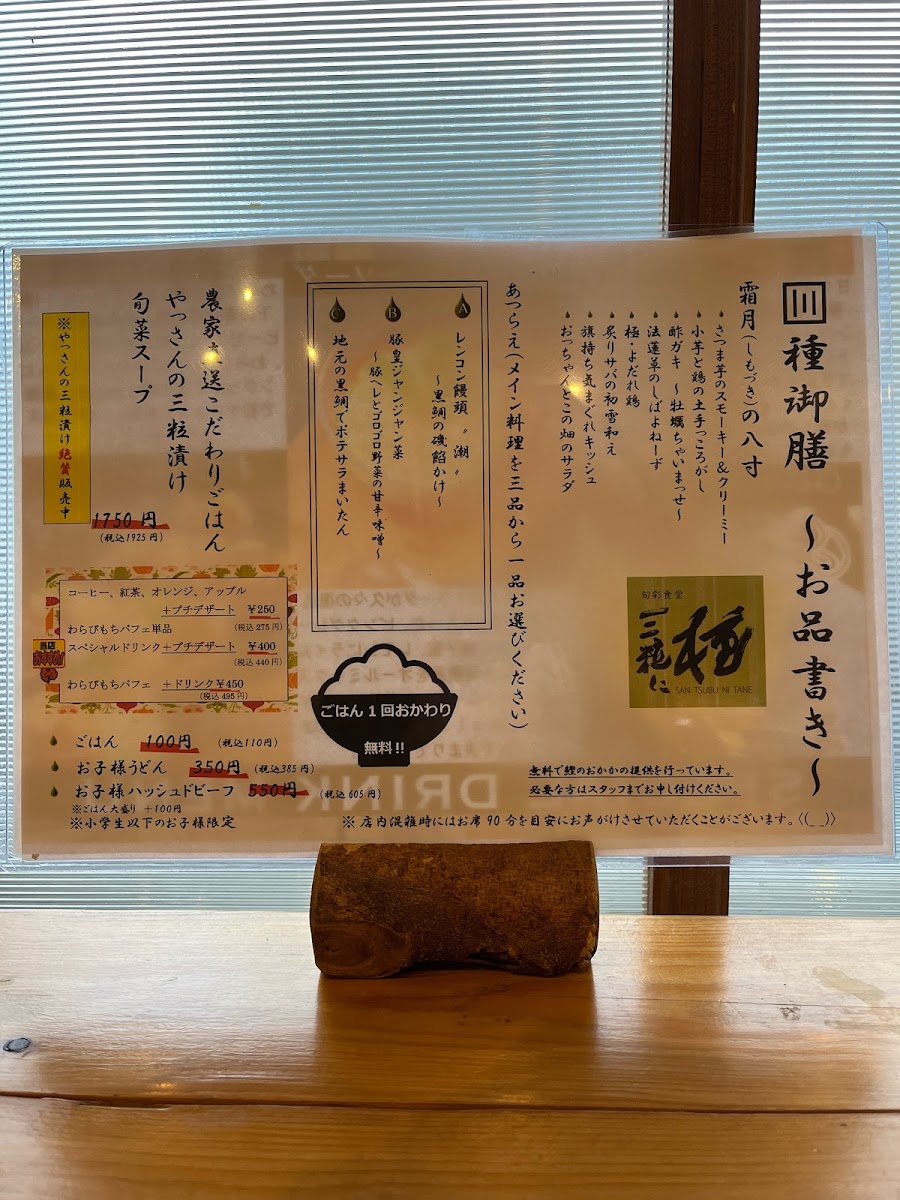 三種御膳 ～お品書き～
霜月(しもづき)の八寸
さつま芋のスモーキー&クリーミー
小芋と鶏の土手っころがし
酢ガキ ～牡蠣ちゃいまっせ～
法蓮草のしばよねーず
極・よだれ鶏
炙りサバの初雪和え
旗持ち気まぐれキッシュ
おっちゃんとこの畑のサラダ
旬彩食堂
三粒に
種
SAN TSUBU NI TANE
あつらえ(メイン料理を三品から一品お選びください)
A
レンコン饅頭 〝潮〟
～黒鯛の磯餡かけ～
B
豚皇ジャンジャン菜
～豚ヘレとゴロゴロ野菜の甘辛味噌～
C
地元の黒鯛でポテサラまいたん
ごはん1回おかわり
無料!!
農家直送こだわりごはん
やっさんの三粒漬け
旬菜スープ
※やっさんの三粒漬け絶賛販売中
1750円
(税込1925円)
コーヒー、紅茶、オレンジ、アップル
+プチデザート ¥250
わらびもちパフェ単品 (税込275円)
スペシャルドリンク+プチデザート ¥400
(税込440円)
わらびもちパフェ +ドリンク¥450
(税込495円)
当店
おすすめ!
ごはん 100円 (税込110円)
お子様うどん 350円 (税込385円)
お子様ハッシュドビーフ 550円 (税込605円)
※ごはん大盛り +100円
※小学生以下のお子様限定
無料で鰹のおかかの提供を行っています。
必要な方はスタッフまでお申し付けください。
※ 店内混雑時にはお席90分を目安にお声がけさせていただくことがございます。〈(_ _)〉
DRINK